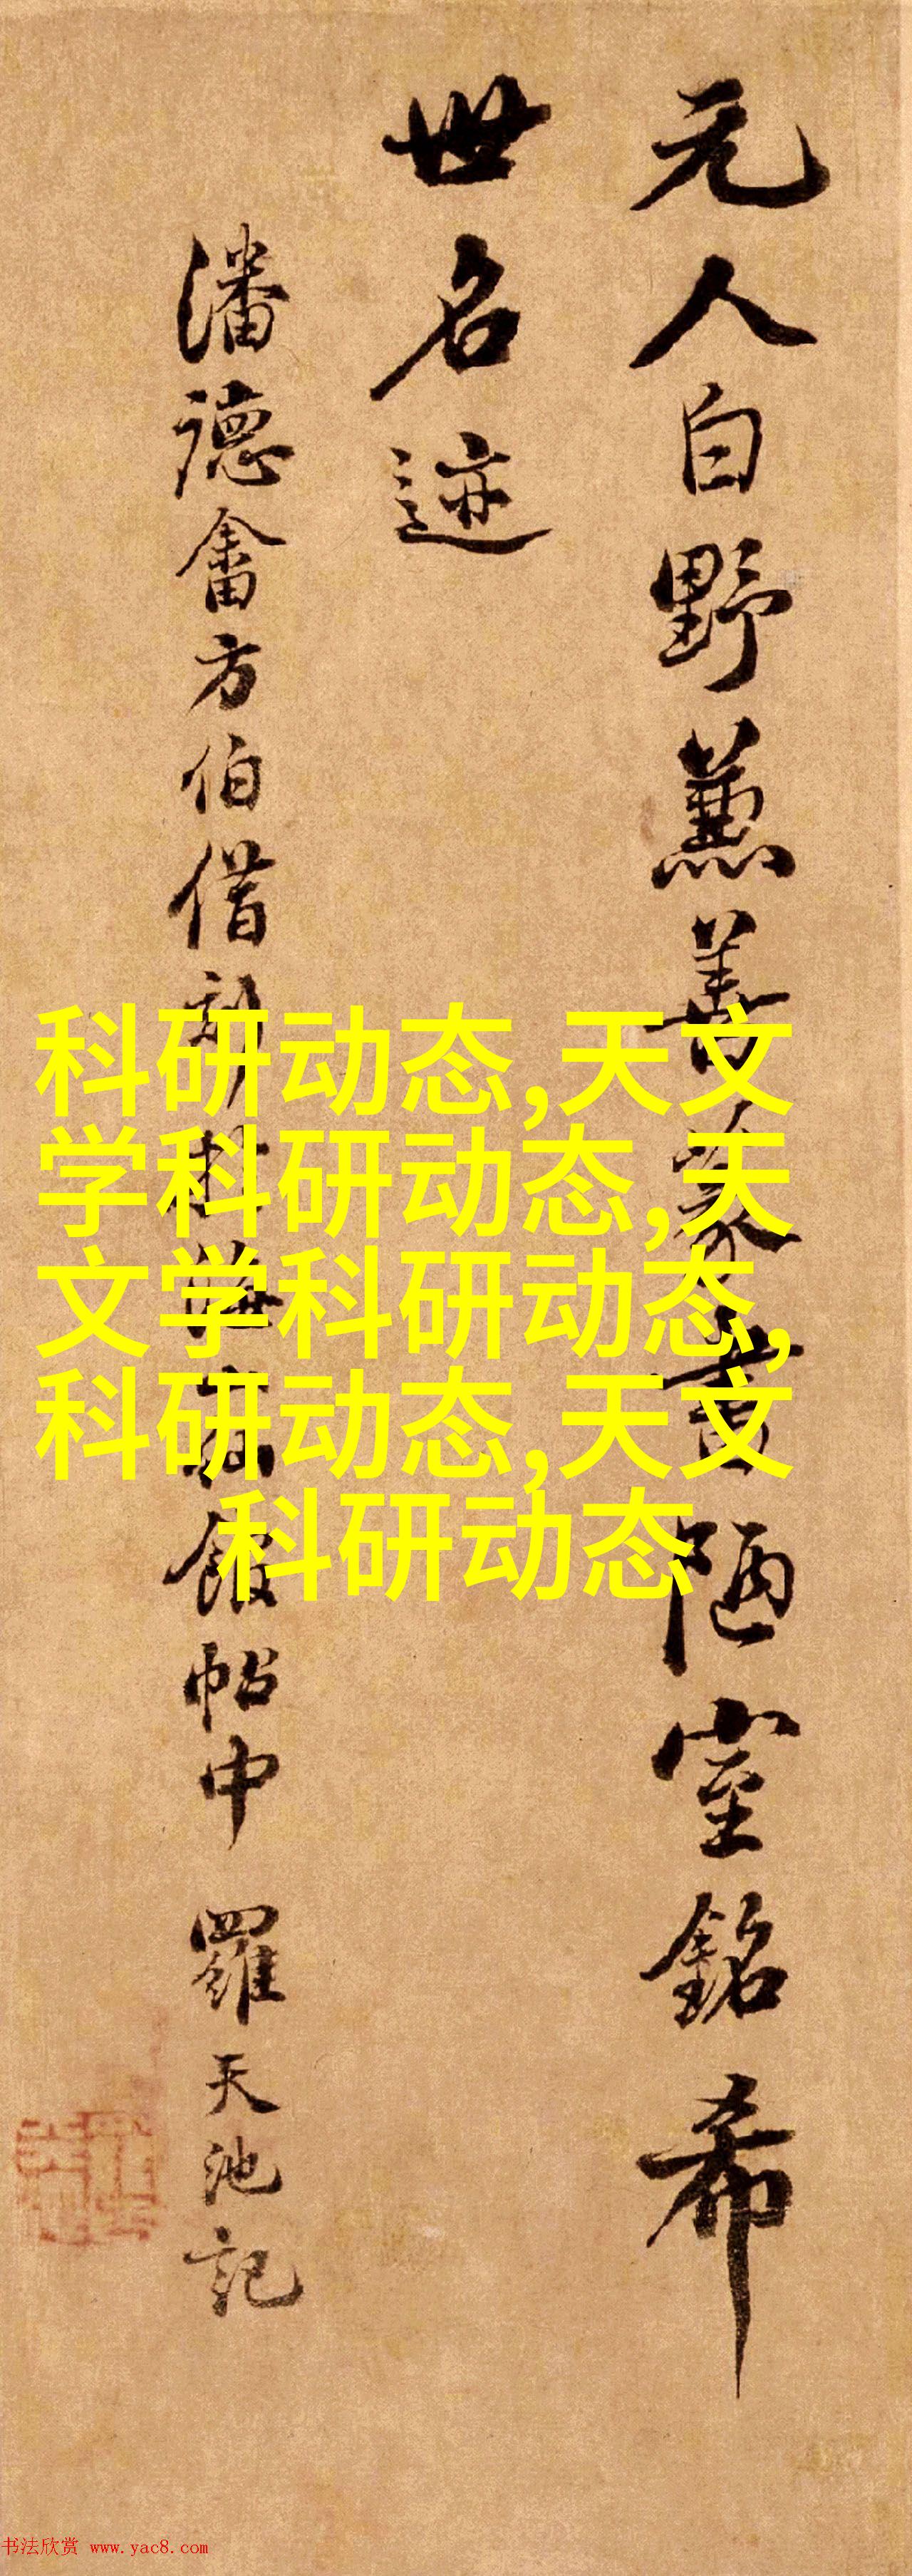 元人白野蕙善篆書陋室銘希
世名迹
潘德畬方伯借刻於海山仙館帖中 羅天池記
科研动态,天文
学科研动态,天
文学科研动态,
科研动态,天文
科研动态
书法欣赏 www.yac8.com